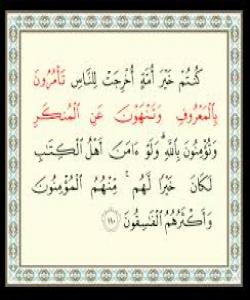 كُنتُمْ خَيْرَ أُمَّةٍ أُخْرِجَتْ لِلنَّاسِ تَأْمُرُونَ
بِالْمَعْرُوفِ وَتَنْهَوْنَ عَنِ الْمُنكَرِ
وَتُؤْمِنُونَ بِاللَّهِ وَلَوْ ءَامَنَ أَهْلُ الْكِتَٰبِ
لَكَانَ خَيْرًا لَّهُم ۚ مِّنْهُمُ الْمُؤْمِنُونَ
وَأَكْثَرُهُمُ الْفَٰسِقُونَ ١١٠